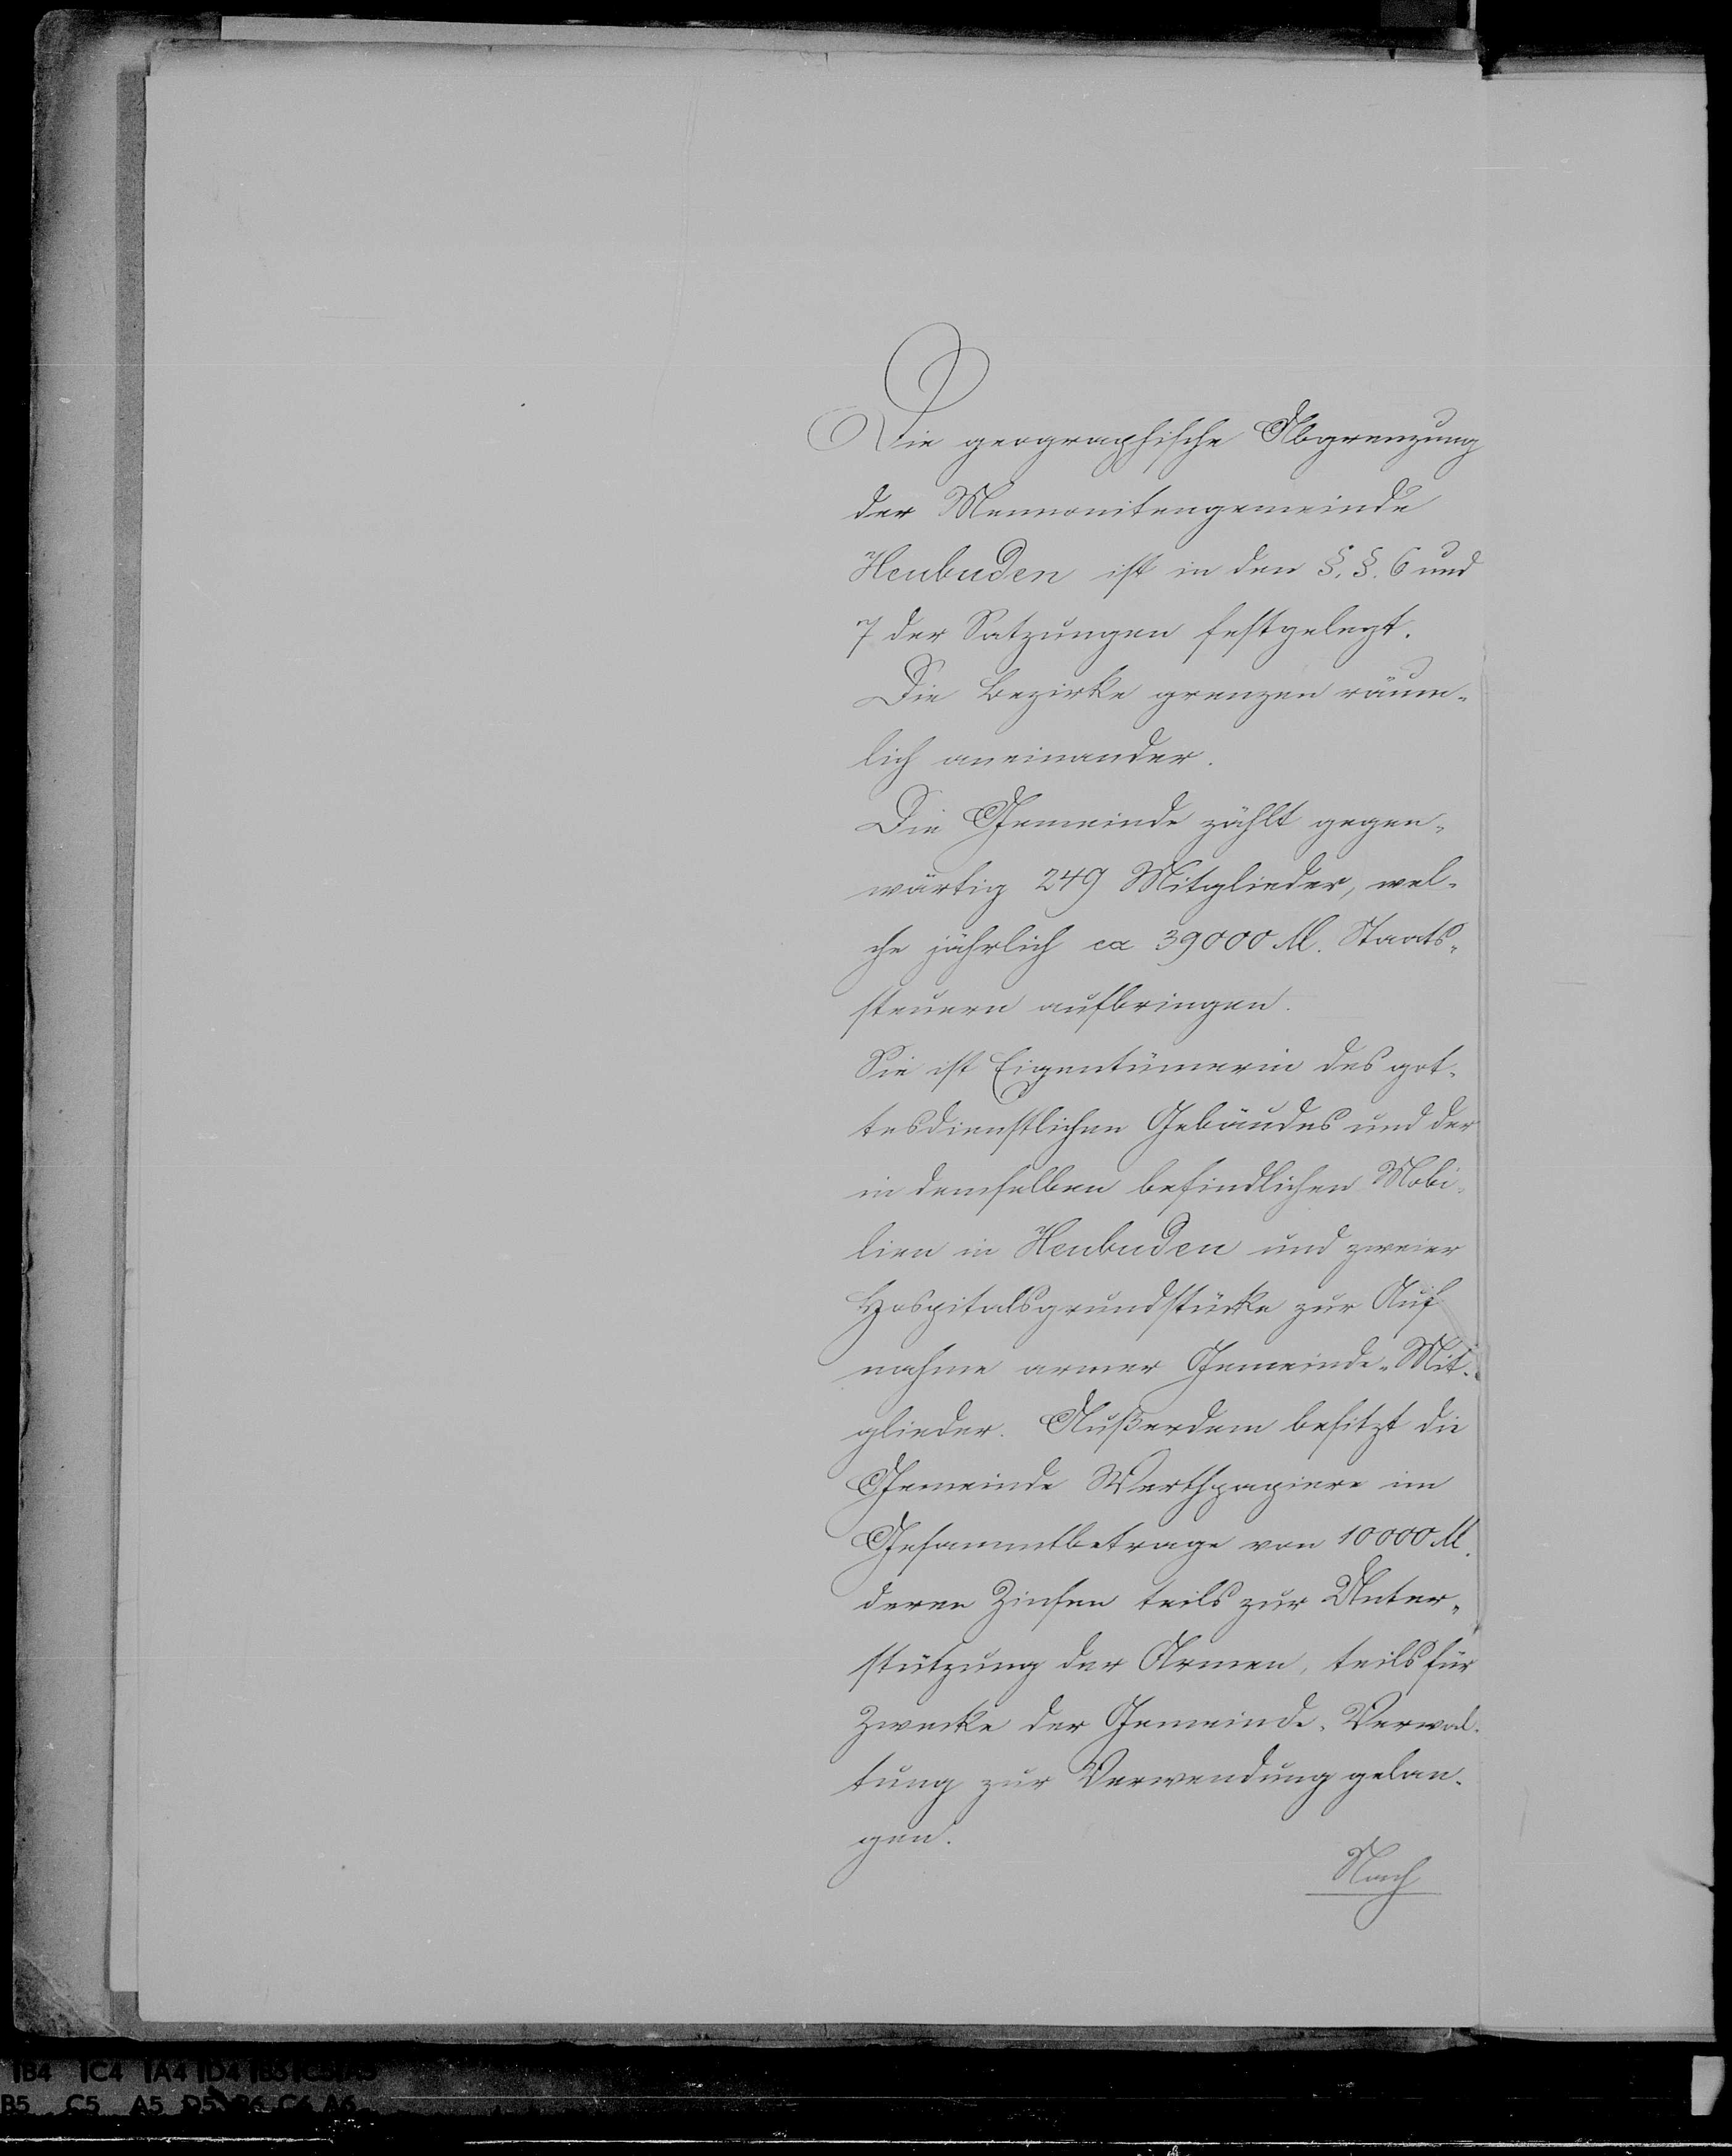 Die geographische Abgrenzung
der Mennonitengemeinde
Heubuden ist in den §. §. 6 und
7 der Satzungen festgelegt.
Die Bezirke grenzen räum-
lich aneinander.
Die Gemeinde zählt gegen-
wärtig 249 Mitglieder, wel-
che jährlich ca 39000 M. Staats-
steuern aufbringen.
Sie ist Eigentümerin des got-
tesdienstlichen Gebäudes und der
in demselben befindlichen Mobi-
lien in Heubuden und zweier
Hospitalsgrundstücke zur Auf
nahme armer Gemeinde-Mit-
glieder. Außerdem besitzt die
Gemeinde Werthpapiere im
Gesammtbetrage von 10000 M.
deren Zinsen teils zur Unter-
stützung der Armen, teils für
Zwecke der Gemeinde-Verwal-
tung zur Verwendung gelan-
gen.
Nach
B4 C4 A4 D4 B3
B5 C5 A5 D5 B6 C6 A6